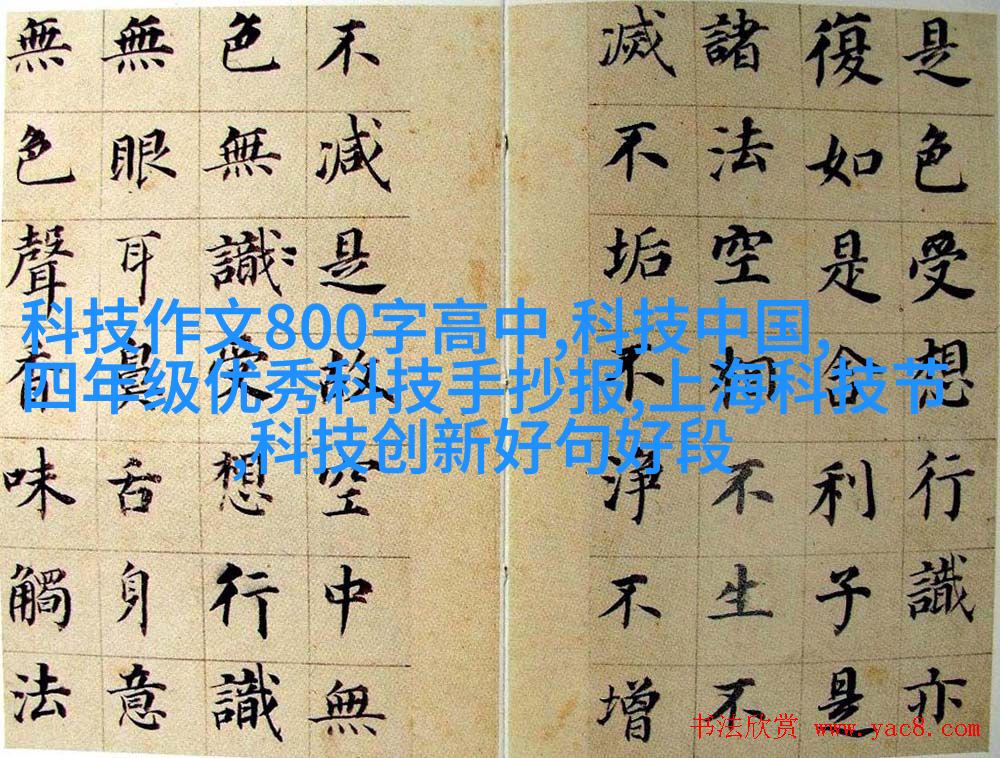 是色受想行識亦
復如是舍利子是
諸法空相不生不
滅不垢不淨不增
不減是故空中無
色無識受想行識
無眼耳鼻舌身意
無色聲香味觸法
科技作文800字高中,科技中国,
四年级优秀科技手抄报,上海科技节
,科技创新好句好段
书法欣赏 www.yac8.com